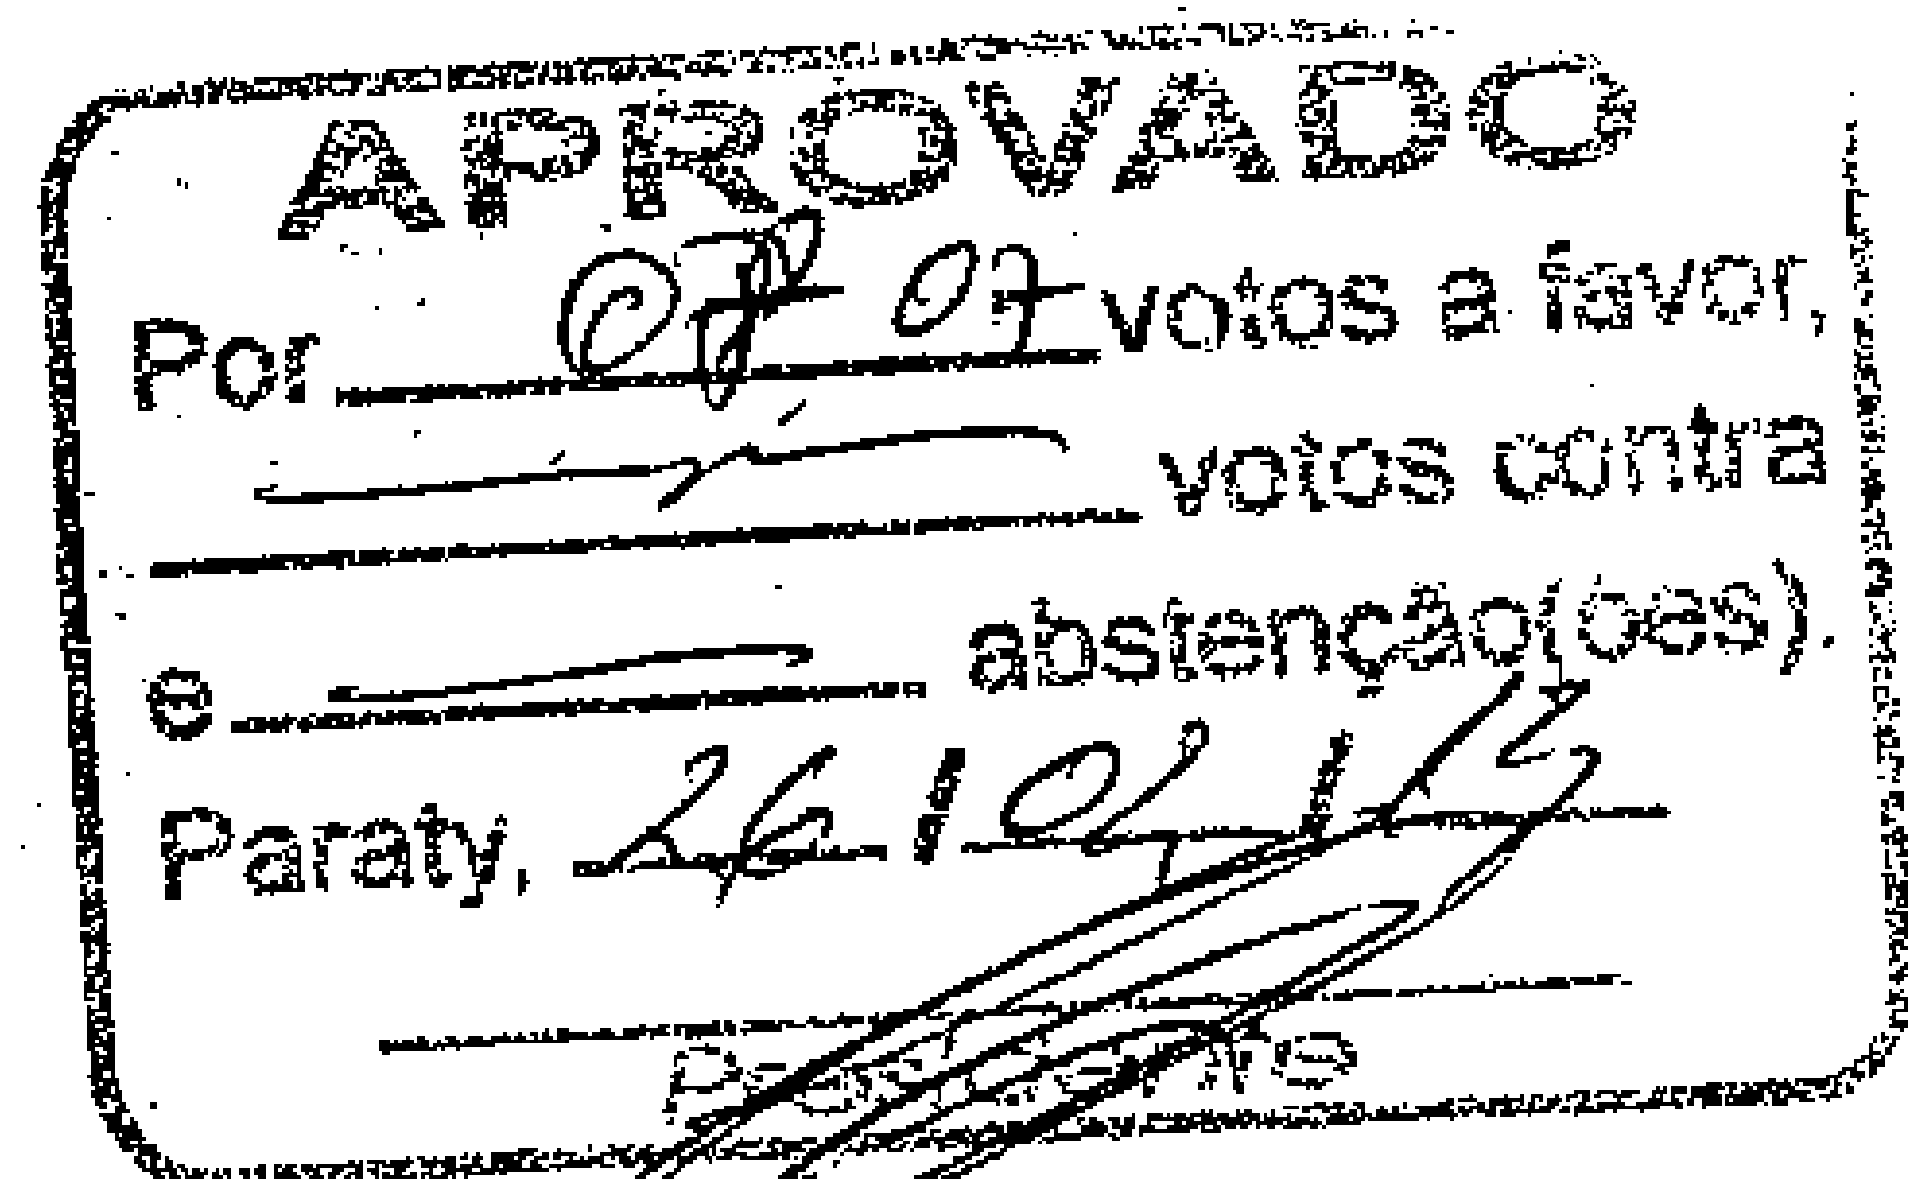 APROVADO
Por 07 votos a favor,
votos contra
e abstenção(ões).
Paraty, 26/02/
Presidente